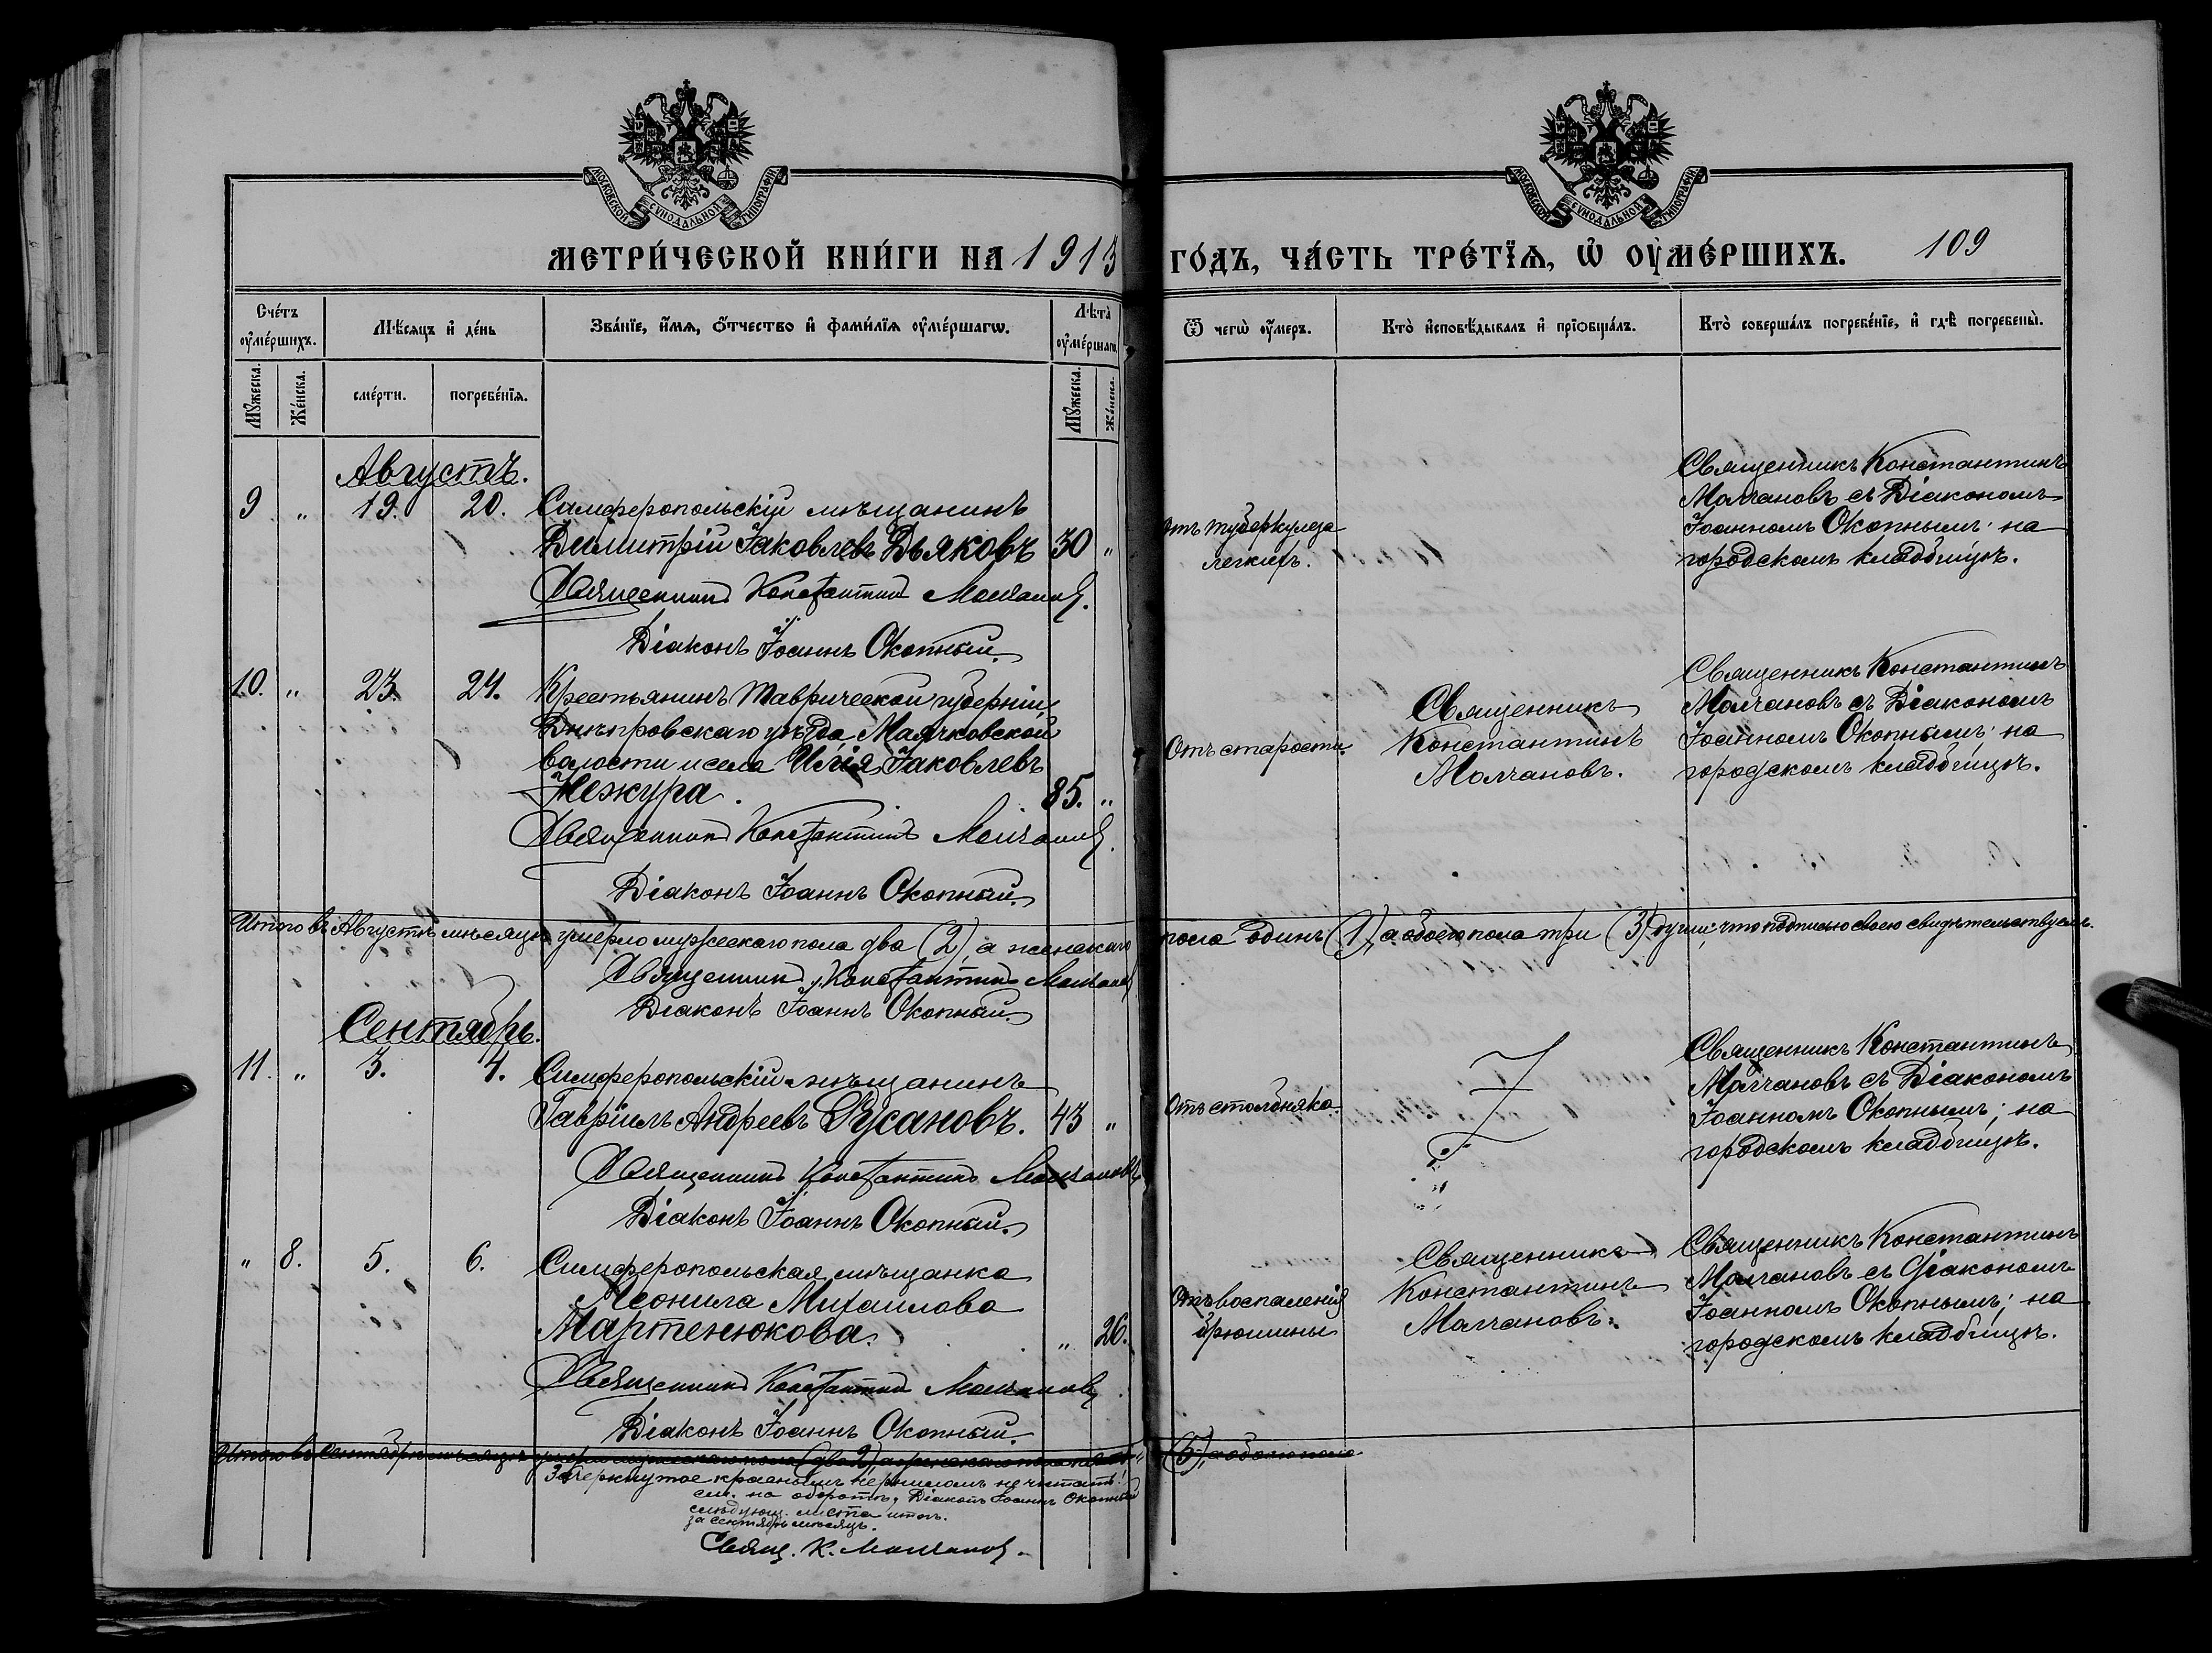 МОСКОВСКОЙ СѴНОДАЛЬНОЙ ТИПОГРАФІИ
МОСКОВСКОЙ СѴНОДАЛЬНОЙ ТИПОГРАФІИ
МЕТРИ́ЧЕСКОЙ КНИ́ГИ НА 1913 ГО́ДЪ, ЧА́СТЬ ТРЕ́ТЇѦ, Ѡ҆ ОУ҆МЕ́РШИХЪ. 109
Сче́тъ оу҆ме́ршихъ.
Мѣ́сѧцъ и҆ де́нь
Зва́нїе, и҆́мѧ, ѻ҆́тчество и҆ фами́лїѧ оу҆ме́ршагѡ.
Лѣта̀ оу҆ме́ршагѡ.
Ѿ чегѡ̀ оу҆́меръ.
Кто̀ и҆сповѣ́дывалъ и҆ прїѡбща́лъ.
Кто̀ соверша́лъ погребе́нїе, и҆ гдѣ̀ погребены̀.
Мꙋ́жеска. Же́нска. сме́рти. погребе́нїѧ. Мꙋ́жеска. Же́нска.
Августъ.
9 „ 19. 20. Симферопольскій мѣщанинъ
Димитрій Іаковлевъ Дьяковъ 30 „
Священникъ Константинъ Молчановъ.
Діаконъ Іоаннъ Окопный.
Отъ туберкулеза
легкихъ.
Священникъ Константинъ
Молчановъ съ Діакономъ
Іоанномъ Окопнымъ; на
городскомъ кладбищѣ.
10. „ 23. 24. Крестьянинъ Таврической губерніи,
Днѣпровскаго уѣзда, Маячковской
волости и села Илія Іаковлевъ
Межура. 85. „
Священникъ Константинъ Молчановъ.
Діаконъ Іоаннъ Окопный.
Отъ старости.
Священникъ
Константинъ
Молчановъ.
Священникъ Константинъ
Молчановъ съ Діакономъ
Іоанномъ Окопнымъ; на
городскомъ кладбищѣ.
Итого въ Августѣ мѣсяцѣ умерло мужескаго пола два (2), а женскаго пола одинъ (1), а обоего пола три (3) души; что подписью своею свидѣтельствуемъ.
Священникъ Константинъ Молчановъ
Діаконъ Іоаннъ Окопный.
Сентябрь.
11. „ 3. 4. Симферопольскій мѣщанинъ
Гавріилъ Андреевъ Русановъ. 43 „
Священникъ Константинъ Молчановъ
Діаконъ Іоаннъ Окопный.
Отъ столбняка.
Священникъ Константинъ
Молчановъ съ Діакономъ
Іоанномъ Окопнымъ; на
городскомъ кладбищѣ.
„ 8. 5. 6. Симферопольская мѣщанка
Леонила Михаилова
Мартенюкова. „ 26.
Священникъ Константинъ Молчановъ
Діаконъ Іоаннъ Окопный.
Отъ воспаленія
брюшины
Священникъ
Константинъ
Молчановъ.
Священникъ Константинъ
Молчановъ съ Діакономъ
Іоанномъ Окопнымъ; на
городскомъ кладбищѣ.
Итого въ Сентябрѣ мѣсяцѣ умерло мужескаго пола (два 2), а женскаго пола (5), а обоего пола
Зачеркнутое краснымъ черниломъ не читать!
см. на оборотѣ, Діаконъ Іоаннъ Окопный
слѣдующ. листа итогъ.
за сентябрь мѣсяцъ.
Свящ. К. Молчановъ.